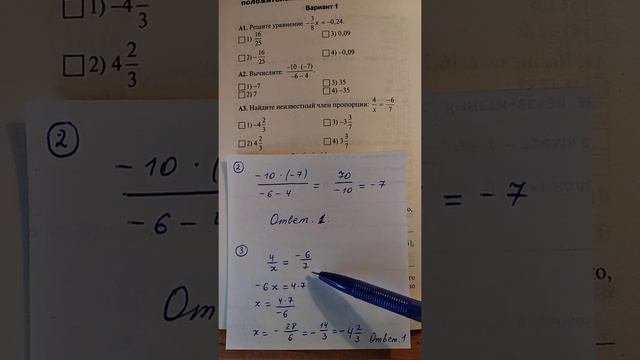 положительн
Вариант 1
А1. Решите уравнение −3/8 x = −0,24.
1) 16/25
3) 0,09
2) −16/25
4) −0,09
А2. Вычислите: −10 · (−7) / −6 − 4.
1) −7
3) 35
2) 7
4) −35
А3. Найдите неизвестный член пропорции: 4/x = −6/7.
1) −4 2/3
3) −3 3/7
2) 4 2/3
4) 3 3/7
②
−10 · (−7) / −6 − 4 = 70 / −10 = −7
Ответ. 1.
③
4/x = −6/7
−6x = 4·7
x = 4·7 / −6
x = −28/6 = −14/3 = −4 2/3 Ответ. 1